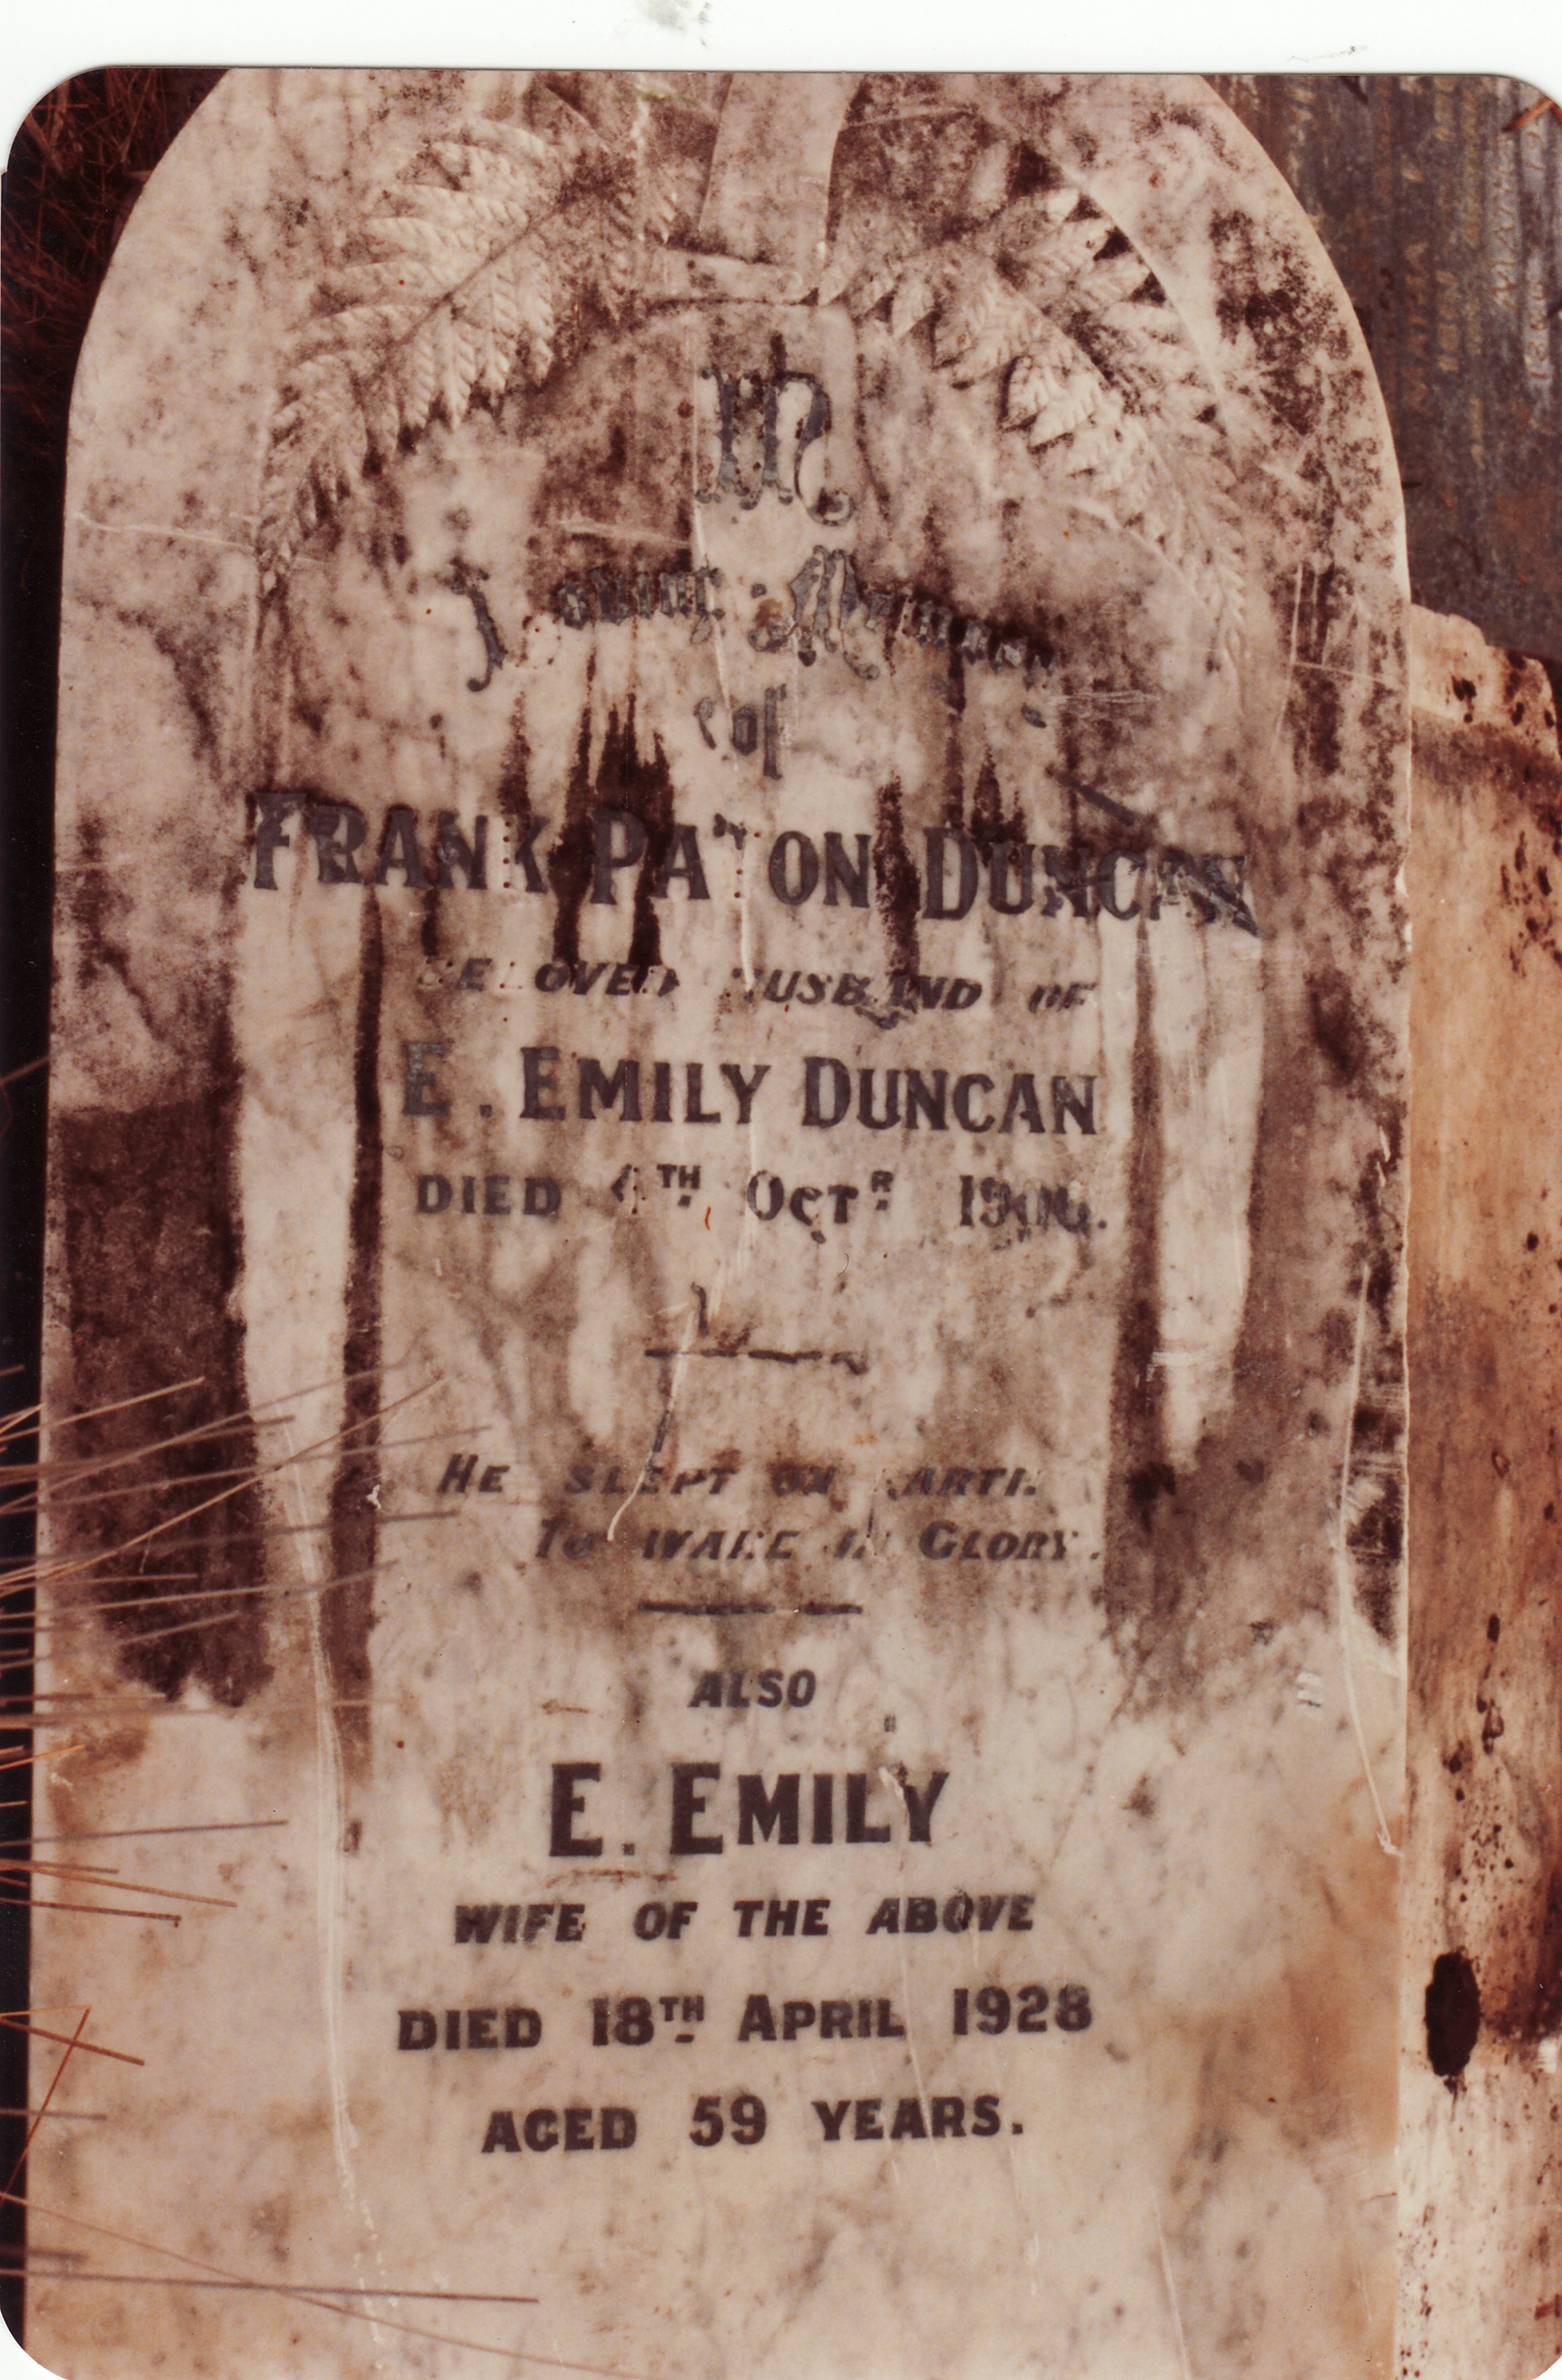 In
Loving Memory
of
FRANK PATON DUNCAN
BELOVED HUSBAND OF
E. EMILY DUNCAN
DIED TH OCTR
HE SLEPT ON EARTH
TO WAKE IN GLORY.
ALSO
E. EMILY
WIFE OF THE ABOVE
DIED 18TH APRIL 1928
AGED 59 YEARS.